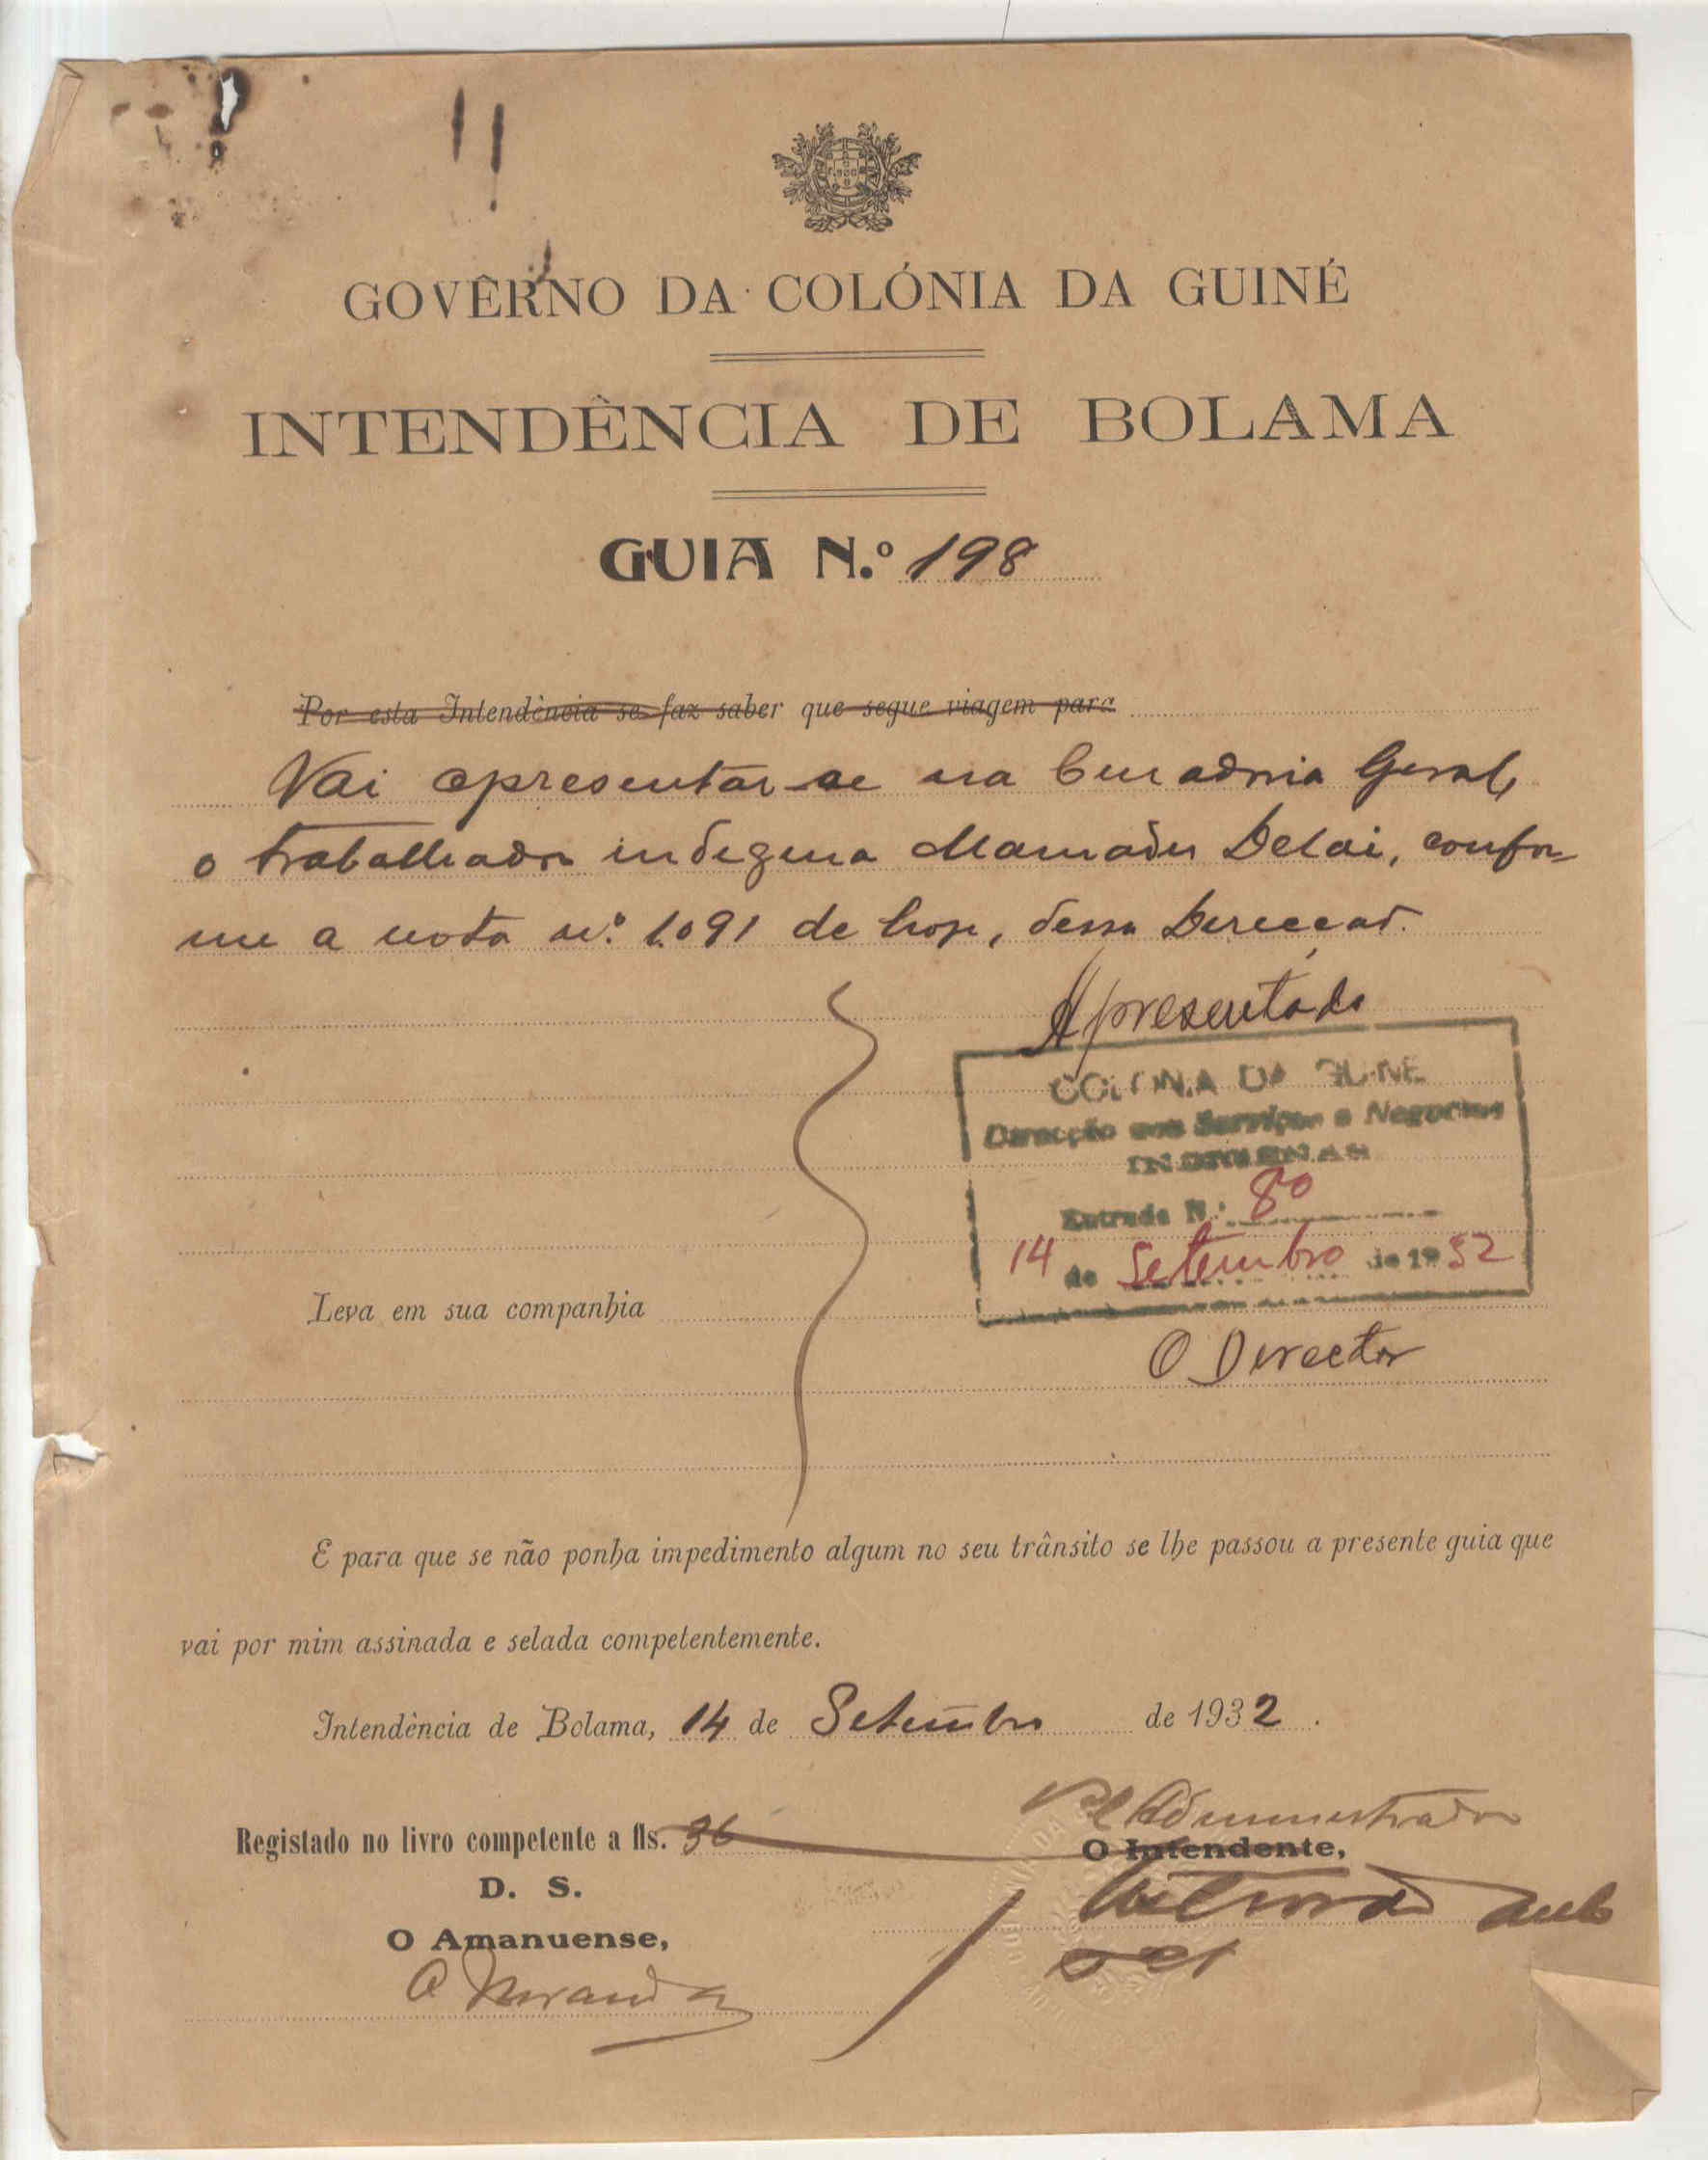 GOVÊRNO DA COLÓNIA DA GUINÉ
INTENDÊNCIA DE BOLAMA
GUIA N.º 198
Por esta Intendência se faz saber que segue viagem para
Vai apresentar-se na Curadoria Geral,
o trabalhador indegena Mamadu Delai, confor-
me a nota nº. 1.091 de hoje, dessa Direcção.
Apresentado
COLONIA DA GUINÉ
Direcção dos Serviços e Negocios
INDIGENAS
Entrada N.º 80
14 de Setembro de 1932
Leva em sua companhia
O Director
E para que se não ponha impedimento algum no seu trânsito se lhe passou a presente guia que
vai por mim assinada e selada competentemente.
Intendência de Bolama, 14 de Setembro de 1932.
Registado no livro competente a fls. 36
D. S.
O Amanuense,
Administrador
O Intendente,